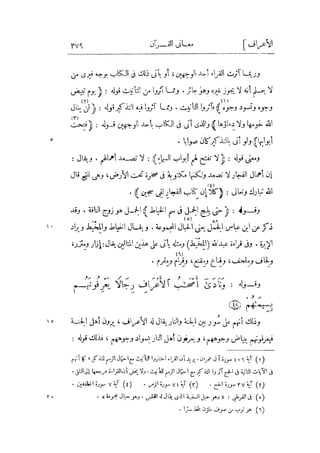 الأعراف ] معانى القرآن ٣٧٩
وربما آثرت القراء أحد الوجهين، أو يأتى ذلك فى الكتاب بوجه فيرى من
لا يعلم أنه لا يجوز غيره وهو جائز. ومما آثروا من التأنيث قوله : ﴿ يوم تبيض
وجوه وتسود وجوه ﴾ (١) فآثروا التأنيث. ومما آثروا فيه التذكير قوله : ﴿ لن ينال (٢)
الله لحومها ولا دماؤها ﴾ والذى أتى فى الكتاب بأحد الوجهين قوله : ﴿ فتحت (٣)
أبوابها ﴾ ولو أتى بالتذكير كان صوابا . ٥
ومعنى قوله : ﴿ لا تفتح لهم أبواب السماء ﴾ : لا تصعد أعمالهم . ويقال :
إن أعمال الفجار لا تصعد ولكنها مكتوبة فى صخرة تحت الأرض، وهى التى قال
الله تبارك وتعالى : ﴿ كلا إن كتاب الفجار لفى سجين (٤) ﴾ .
وقوله : ﴿ حتى يلج الجمل فى سم الخياط ﴾ الجمل هو زوج الناقة . وقد
ذكر عن ابن عباس الجُمَّل يعنى الحبال (٥) المجموعة . ويقال الخياط والمِخْيَط ويراد ١٠
الإبرة . وفى قراءة عبد الله ( المِخْيَط ) ومثله يأتى على هذين المثالين يقال : إزار ومئزر،
ولحاف وملحف، وقناع ومقنع، وقِرام (٦) ومقرم .
وقوله : وَنَادَىٰٓ أَصْحَٰبُ ٱلْأَعْرَافِ رِجَالًا يَعْرِفُونَهُم
بِسِيمَىٰهُمْ ٤٨
وذلك أنهم على سُور بين الجنة والنار يقال له الأعراف، يرون أهل الجنة ١٥
فيعرفونهم ببياض وجوههم، ويعرفون أهل النار بسواد وجوههم، فذلك قوله :
(١) آية ١٠٦ سورة آل عمران . يريد أن القراء اختاروا التأنيث مع احتمال الرسم للتذكير،
فى الآيات التالية فى الحج آثروا التذكير مع احتمال الرسم للتأنيث. ولا يخفى أن القراءة مرجعها إلى التلقى .
(٢) آية ٣٧ سورة الحج . (٣) آية ٧١ سورة الزمر . (٤) آية ٧ سورة المطففين .
(٥) فى القرطبى : « وهو حبل السفينة الذى يقال له القلس . وهو حبال مجموعة » . ٢٠
(٦) هو ثوب من صوف ملوّن يتخذ سترا .